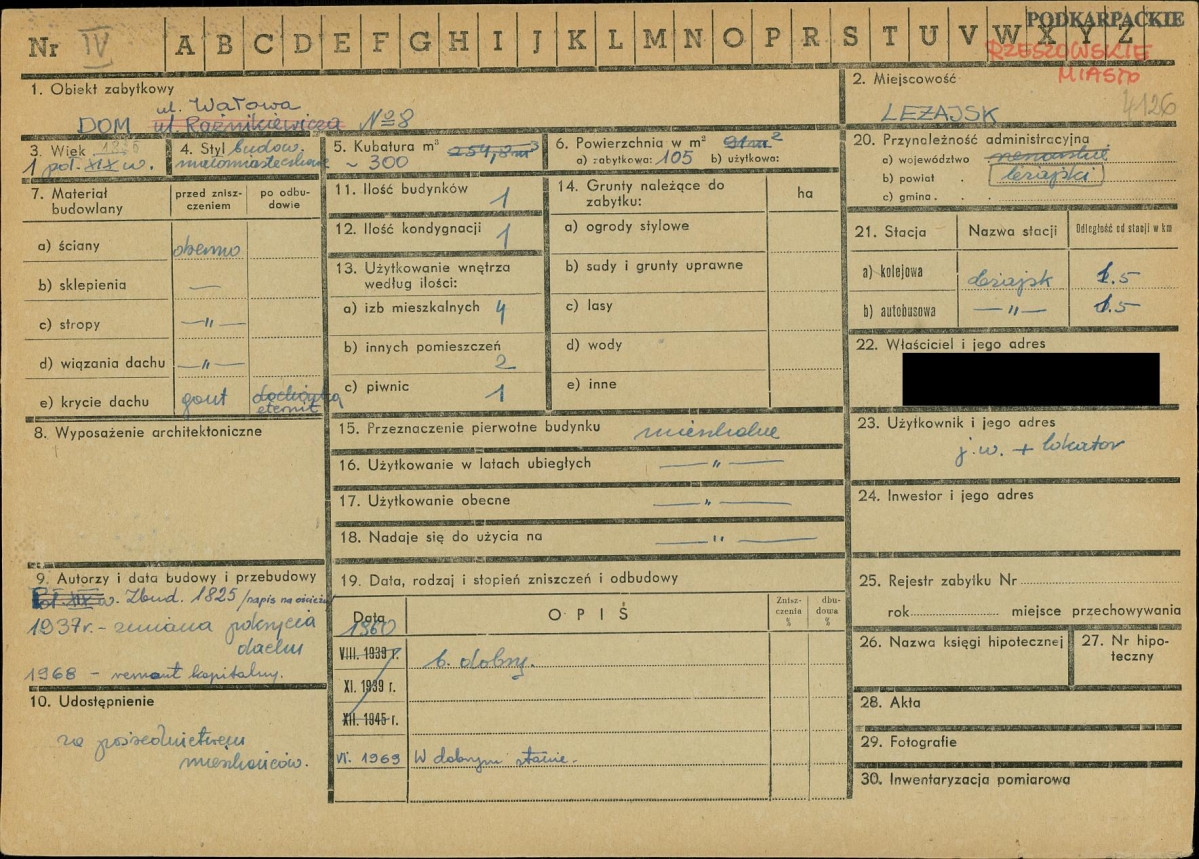 Nr IV A B C D E F G H I J K L M N O P R S T U V W X Y Z
PODKARPACKIE
RZESZOWSKIE
MIASTO
4126
1. Obiekt zabytkowy
ul. Wałowa
DOM ul. Nº 8
2. Miejscowość
LEŻAJSK
3. Wiek
1 poł. XIX w.
4. Styl budow.
małomiasteczkowe
5. Kubatura m³ 254,8 m³
~ 300
6. Powierzchnia w m² 91 m²
a) zabytkowa: 105 b) użytkowa:
7. Materiał budowlany
przed zniszczeniem
po odbudowie
a) ściany drewno
b) sklepienia —
c) stropy —"—
d) wiązania dachu —"—
e) krycie dachu gont dachówka
eternit
8. Wyposażenie architektoniczne
9. Autorzy i data budowy i przebudowy
Zbud. 1825 /napis na
1937 r. - zmiana pokrycia
dachu
1968 - remont kapitalny.
10. Udostępnienie
za pośrednictwem
mieszkańców.
11. Ilość budynków 1
12. Ilość kondygnacji 1
13. Użytkowanie wnętrza
według ilości:
a) izb mieszkalnych 4
b) innych pomieszczeń
2
c) piwnic 1
14. Grunty należące do
zabytku:
ha
a) ogrody stylowe
b) sady i grunty uprawne
c) lasy
d) wody
e) inne
15. Przeznaczenie pierwotne budynku mieszkalne
16. Użytkowanie w latach ubiegłych —"—
17. Użytkowanie obecne —"—
18. Nadaje się do użycia na —"—
19. Data, rodzaj i stopień zniszczeń i odbudowy
Data OPIŚ Zniszczenia % dbudowa %
1960
VIII. 1939 r. b. dobry.
XI. 1939 r.
XII. 1945 r.
VI. 1969 W dobrym stanie.
20. Przynależność administracyjna
a) województwo
b) powiat . leżajski
c) gmina . .
21. Stacja Nazwa stacji Odległość od stacji w km
a) kolejowa Leżajsk 1.5
b) autobusowa —"— 1.5
22. Właściciel i jego adres
23. Użytkownik i jego adres
j.w. + lokator
24. Inwestor i jego adres
25. Rejestr zabytku Nr
rok miejsce przechowywania
26. Nazwa księgi hipotecznej
27. Nr hipoteczny
28. Akta
29. Fotografie
30. Inwentaryzacja pomiarowa